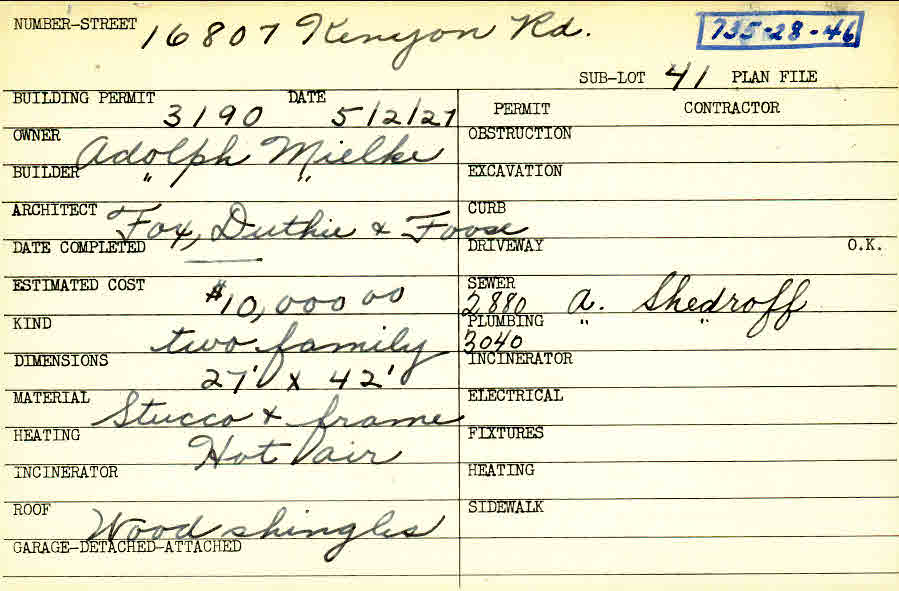 NUMBER-STREET 16807 Kenyon Rd. 735-28-46
SUB-LOT 41 PLAN FILE
BUILDING PERMIT 3190 DATE 5/2/27
PERMIT CONTRACTOR
OWNER Adolph Mielke
BUILDER " "
ARCHITECT Fox, Duthie & Foose
DATE COMPLETED
ESTIMATED COST $10,000 00
KIND two family
DIMENSIONS 27' x 42'
MATERIAL Stucco & frame
HEATING Hot air
INCINERATOR
ROOF Wood shingles
GARAGE-DETACHED-ATTACHED
OBSTRUCTION
EXCAVATION
CURB
DRIVEWAY O.K.
SEWER 2880 A. Shedroff
PLUMBING 3040 " "
INCINERATOR
ELECTRICAL
FIXTURES
HEATING
SIDEWALK